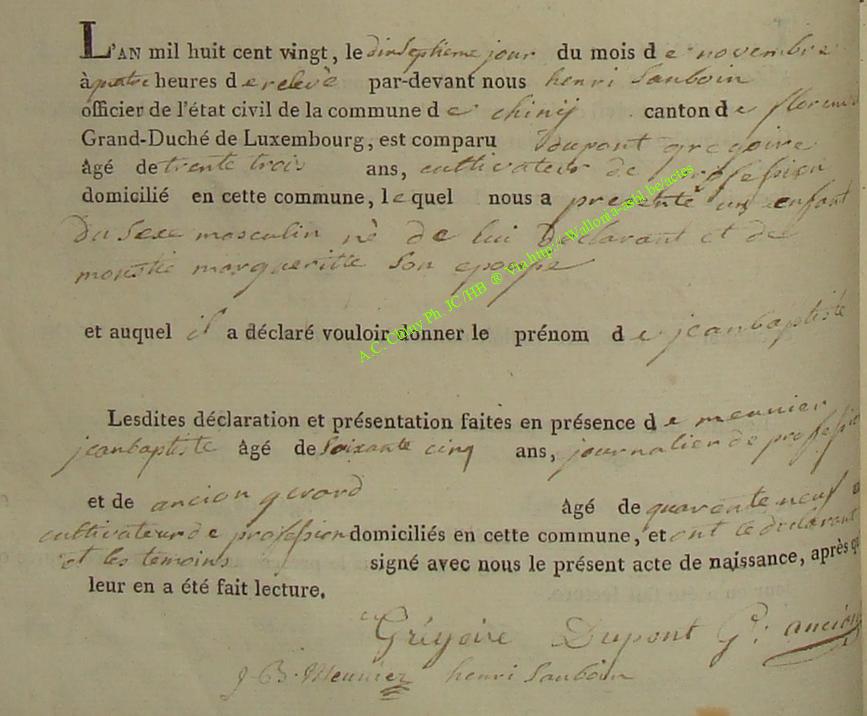 L'AN mil huit cent vingt, le dixseptieme jour du mois de novembre
à quatre heures de relevé par-devant nous henri Sauboin
officier de l'état civil de la commune de chinij canton de
Grand-Duché de Luxembourg, est comparu dupont gregoire
âgé de trente trois ans, cultivateur de profession
domicilié en cette commune, lequel nous a presenté un enfant
du sexe masculin né de lui declarant et de
margueritte son epouse
et auquel il a déclaré vouloir donner le prénom de jeanbaptiste
Lesdites déclaration et présentation faites en présence de meunier
jeanbaptiste âgé de soixante cinq ans, journalier de professi
et de ancion gerard âgé de quarante neuf a
cultivateur de profession domiciliés en cette commune, et ont le declarant
et les temoins signé avec nous le présent acte de naissance, après q
leur en a été fait lecture.
Grégoire Dupont G. ancion
J. B. Meunier henri Sauboin
A.C. Chiny Ph. JC/HB ® Via http://Wallonia-asbl.be/actes